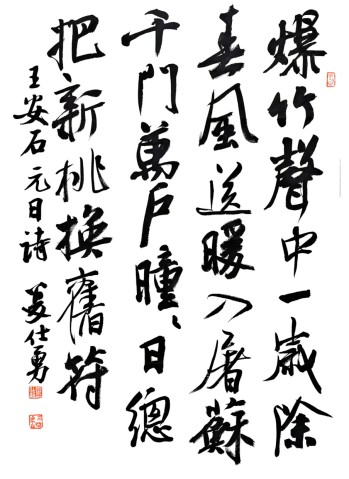 爆竹聲中一歲除
春風送暖入屠蘇
千門萬戶瞳〻日總
把新桃換舊符
王安石元日詩 仕勇